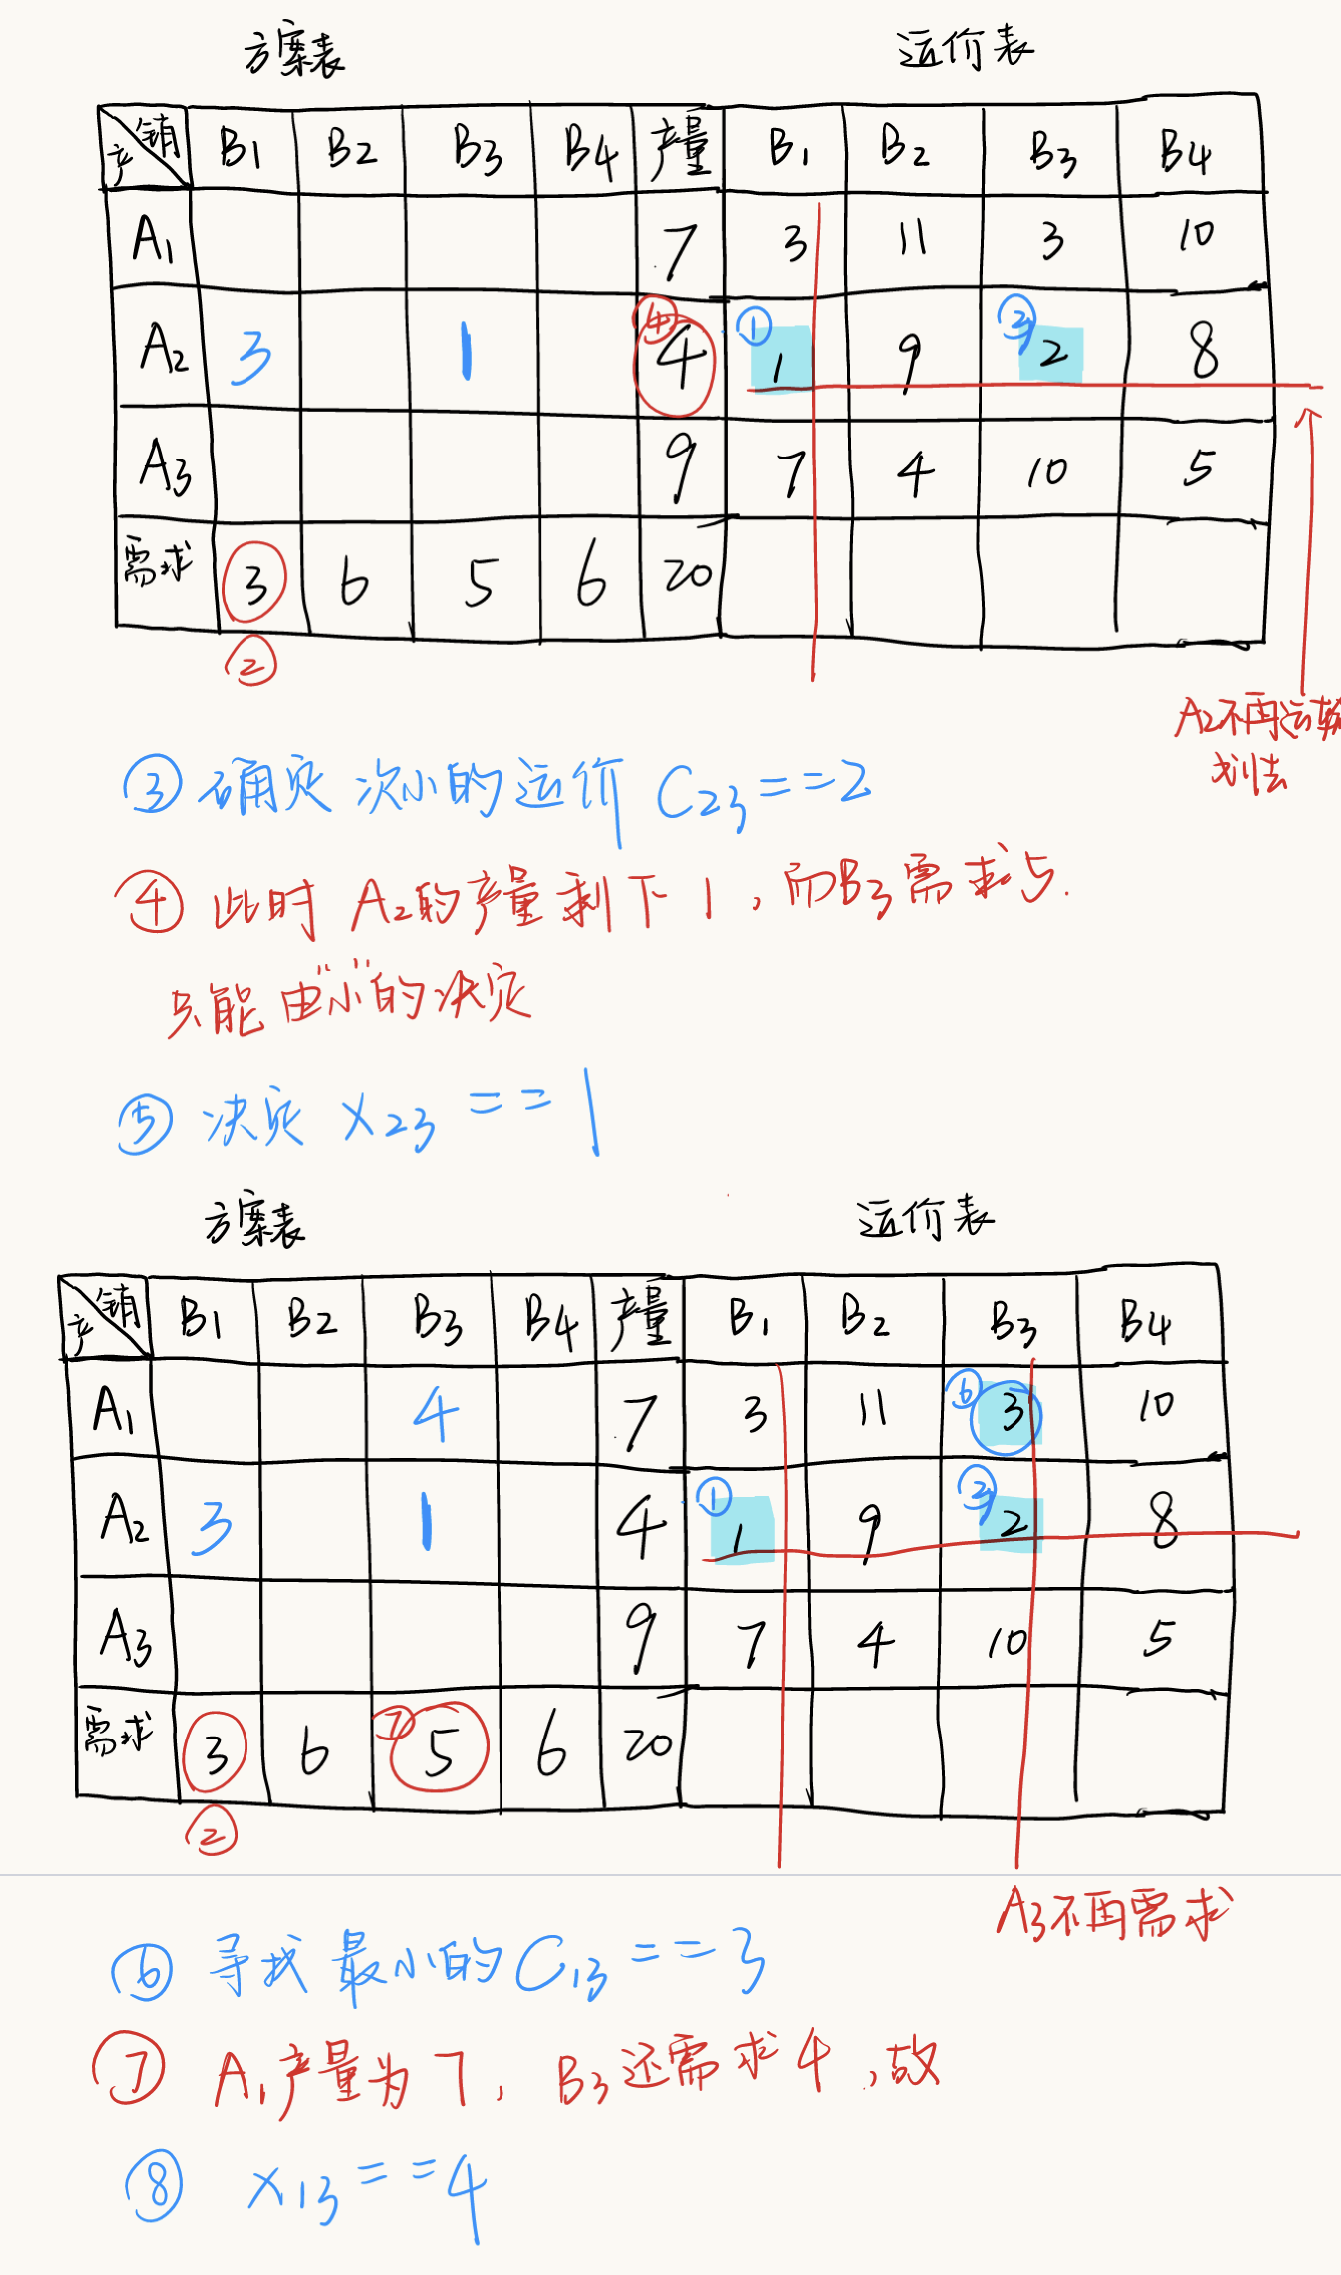 方案表 运价表
销 产 B1 B2 B3 B4 产量 B1 B2 B3 B4
A1 7 3 11 3 10
④ ① ③
A2 3 1 4 1 9 2 8
A3 9 7 4 10 5
需求 3 6 5 6 20
②
A2不再运输
划去
③ 确定 次小的运价 C23==2
④ 此时 A2的产量剩下 1，而B3需求5.
只能由"小"的决定
⑤ 决定 x23 == 1
方案表 运价表
销 产 B1 B2 B3 B4 产量 B1 B2 B3 B4
⑥
A1 4 7 3 11 3 10
① ③
A2 3 1 4 1 9 2 8
A3 9 7 4 10 5
⑦
需求 3 6 5 6 20
②
A3不再需求
⑥ 寻找最小的C13==3
⑦ A1产量为7，B3还需求4，故
⑧ x13==4